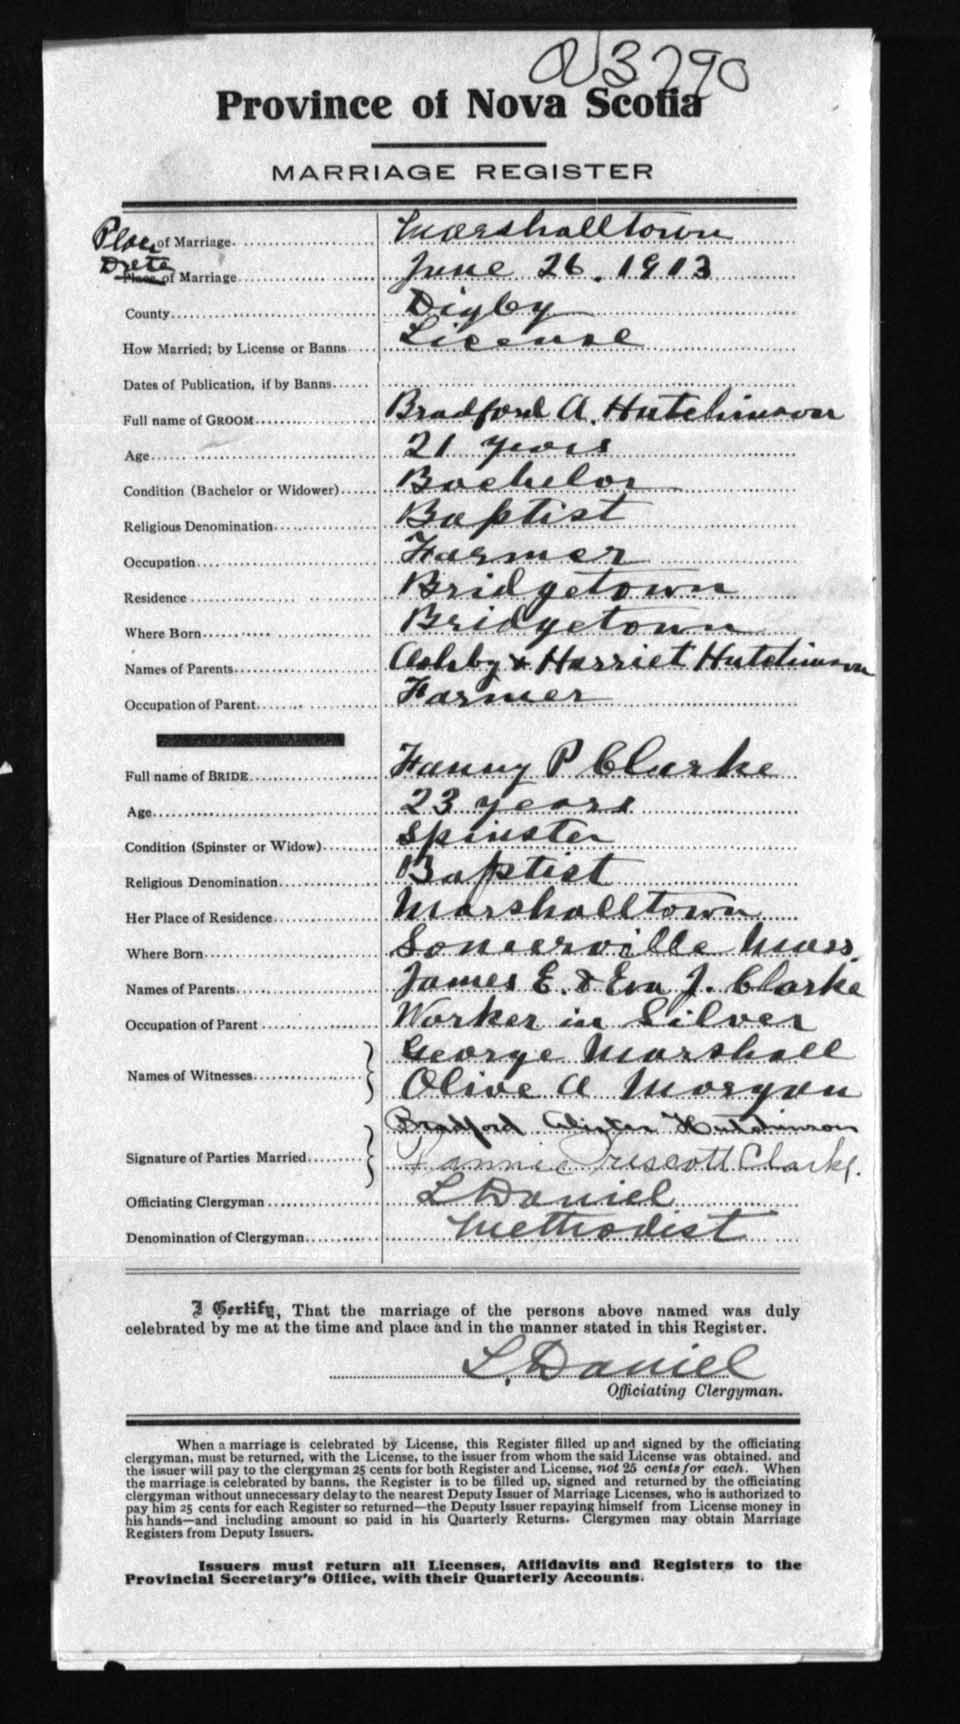 3790
Province of Nova Scotia
MARRIAGE REGISTER
Place of Marriage Marshalltown
Date Place of Marriage June 26. 1913
County Digby
How Married; by License or Banns License
Dates of Publication, if by Banns
Full name of GROOM Bradford A. Hutchinson
Age 21 years
Condition (Bachelor or Widower) Bachelor
Religious Denomination Baptist
Occupation Farmer
Residence Bridgetown
Where Born Bridgetown
Names of Parents & Harriet Hutchinson
Occupation of Parent Farmer
Full name of BRIDE Fanny P Clarke
Age 23 years
Condition (Spinster or Widow) Spinster
Religious Denomination Baptist
Her Place of Residence Marshalltown
Where Born Somerville Mass.
Names of Parents James E. & Eva J. Clarke
Occupation of Parent Worker in Silver
Names of Witnesses George Marshall
Olive A Morgan
Signature of Parties Married Bradford Hutchinson
Fannie Prescott Clarke.
Officiating Clergyman L Daniel
Denomination of Clergyman Methodist
I Certify, That the marriage of the persons above named was duly
celebrated by me at the time and place and in the manner stated in this Register.
L. Daniel
Officiating Clergyman.
When a marriage is celebrated by License, this Register filled up and signed by the officiating
clergyman, must be returned, with the License, to the issuer from whom the said License was obtained. and
the issuer will pay to the clergyman 25 cents for both Register and License, not 25 cents for each. When
the marriage is celebrated by banns, the Register is to be filled up, signed and returned by the officiating
clergyman without unnecessary delay to the nearest Deputy Issuer of Marriage Licenses, who is authorized to
pay him 25 cents for each Register so returned—the Deputy Issuer repaying himself from License money in
his hands—and including amount so paid in his Quarterly Returns. Clergymen may obtain Marriage
Registers from Deputy Issuers.
Issuers must return all Licenses, Affidavits and Registers to the
Provincial Secretary's Office, with their Quarterly Accounts.